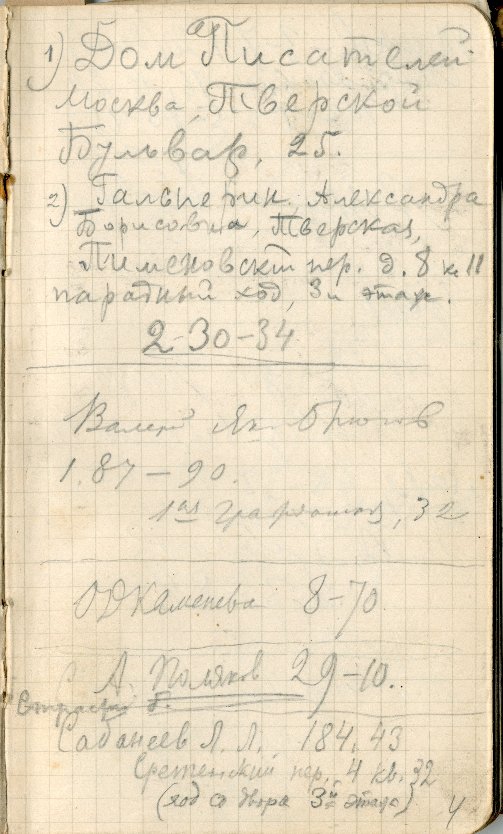 1) Дом Писателей
Москва, Тверской
Бульвар, 25.
2) Гальперин Александра
Борисовна, Тверская,
Пименовский пер. д. 8 к. 11
парадный ход, 3й этаж.
2-30-34
Валерий Як. Брюсов
1.87-90.
1ая 32
О Д Каменева 8-70
А. Поляков 29-10.
б.
Сабанеев Л. Л. 184.43
Сретенский пер. 4 кв. 32
(ход со двора 3й этаж)